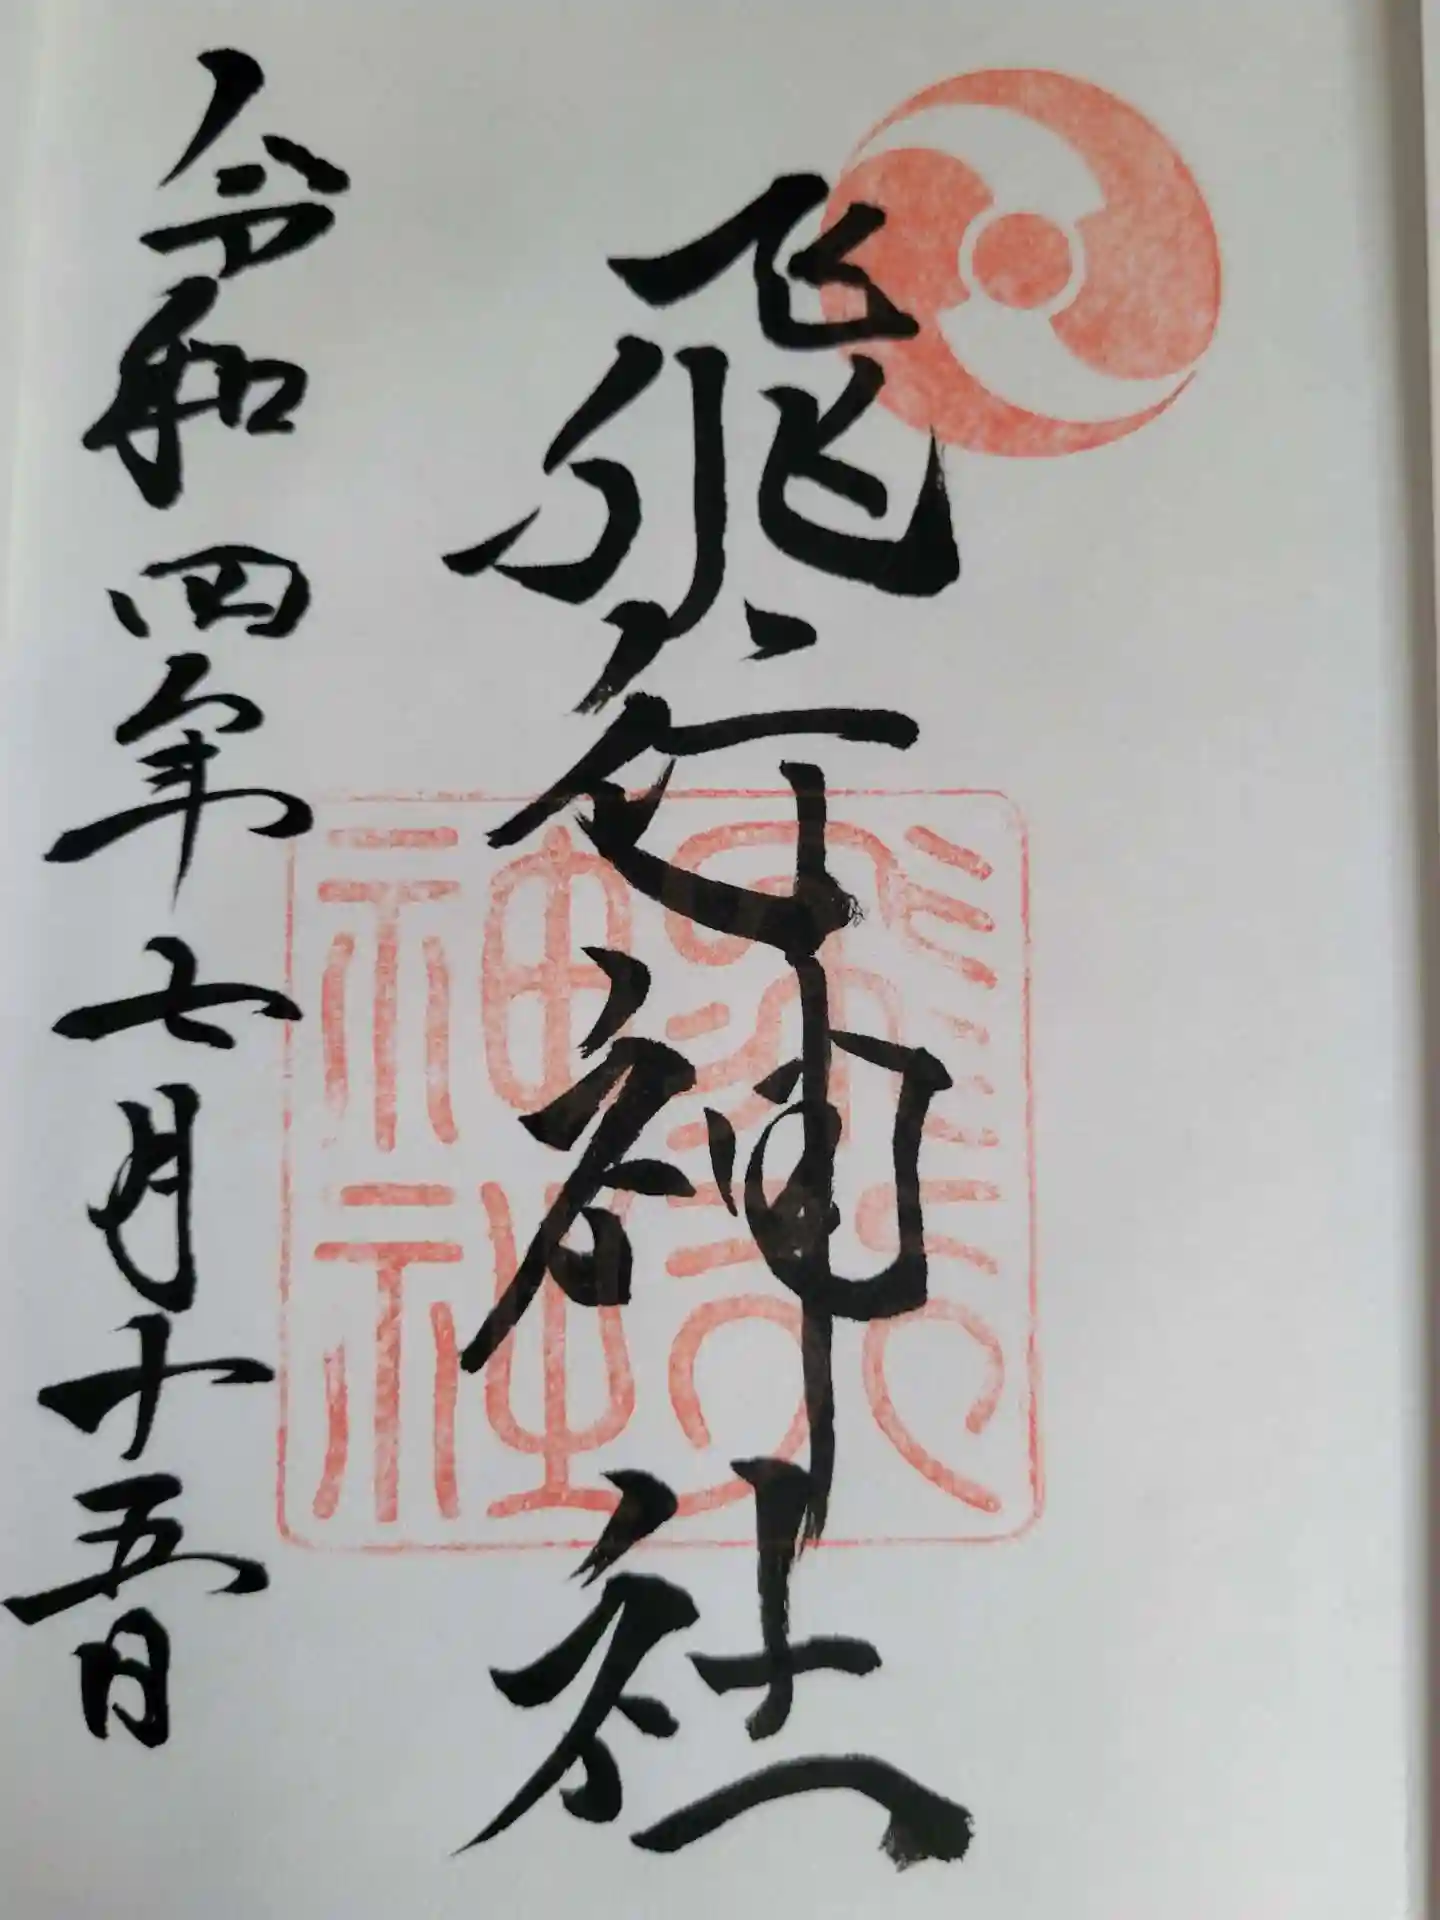 飛行神社
飛行
神社
令和四年七月十五日